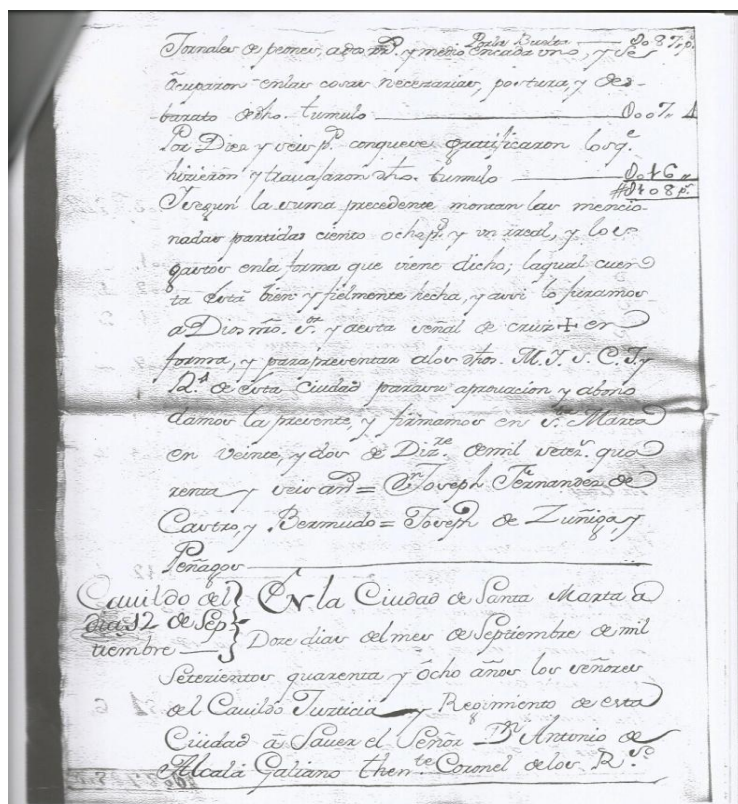 Por la Buelta — $087„p.s
Jornales de peones, a dos rr.s y medio en cada uno, y se
ocuparon en las cosas necesarias, postura, y des-
barato de dho. tumulo — $007„4
Por Diez y seis p.s con que se gratificaron los q.e
hizieron y travajaron dho. tumulo — $016„
#$108p.s
Y segun la suma precedente montan las mencio-
nadas partidas ciento ocho p.s y un rreal, y los
gastos en la forma que viene dicho; la qual cuen
ta está bien y fielmente hecha, y assi lo juramos
a Dios nro. s.or y a esta señal de cruz + en
forma, y para presentar a los dhos. M. I. S. C. J. y
R.to de esta ciudad para su aprovacion y abono
damos la presente, y firmamos en S.ta Marta
en veinte, y dos de Diz.re de mil setez.s qua
renta y seis añ.s = D.n Joseph Fernandez de
Castro, y Bermudo = Joseph de Zuñiga, y
Peñagos
Cauildo del
dia 12 de Sep
tiembre
EN la Ciudad de Santa Marta a
Doze dias del mes de Septiembre de mil
Setezientos quarenta y ócho años los señores
del Cauildo Justicia y Regimiento de esta
Ciudad â Sauer el Señor D.n Antonio de
Alcalá Galiano then.te Coronel de los R.s